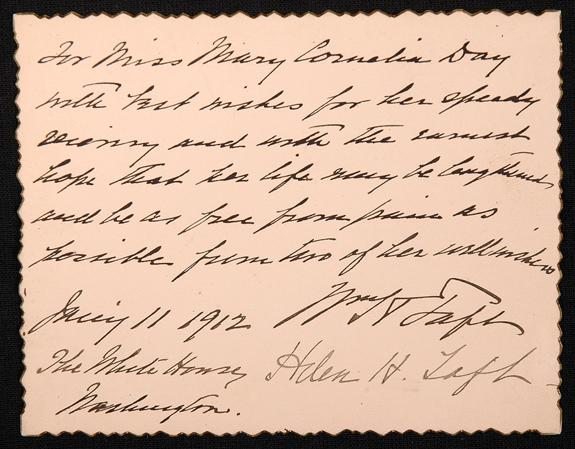 For Miss Mary Cornelia Day
with best wishes for her speedy
recovery and with the earnest
hope that her life may be lengthened
and be as free from pain as
possible from two of her wellwishers
Wm H Taft
Jany 11 1912
The White House, Helen H. Taft
Washington.